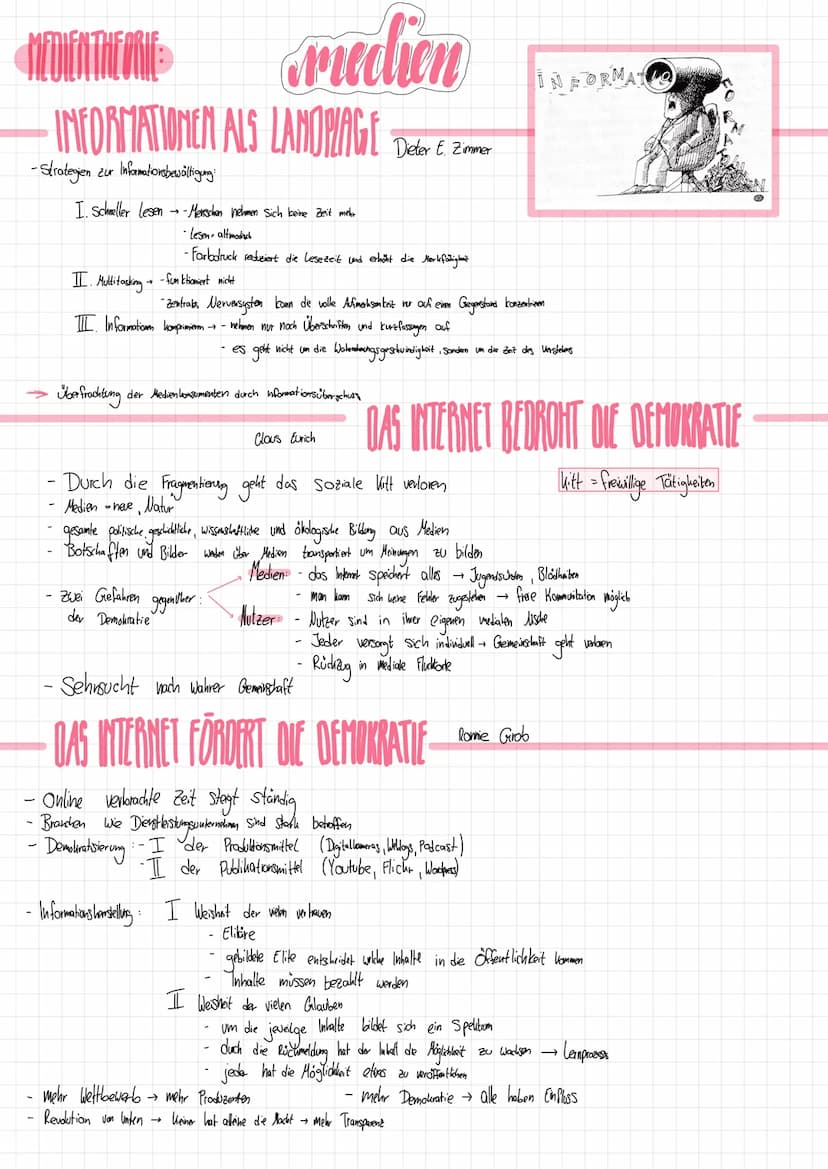 MEDIENTHEORIE:
medien
INFORMATIONEN
INFORMATIONEN ALS LANDPLAGE
Dieter E. Zimmer
- Strategien zur Informationsbewältigung:
I. Schneller lesen → - Menschen nehmen sich keine Zeit mehr
- lesen = altmodisch
- Farbdruck reduziert die Lesezeit und erhöht die Merkfähigkeit
II. Multitasking → - funktioniert nicht
- zentrales Nervensystem kann die volle Aufmerksamkeit nur auf einen Gegenstand konzentrieren
III. Informationen komprimieren → - nehmen nur noch Überschriften und Kurzfassungen auf
- es geht nicht um die Wahrnehmungsgeschwindigkeit, sondern um die Zeit des Verstehens
→ Überfrachtung der Medienkonsumenten durch Informationsüberschuss
DAS INTERNET BEDROHT DIE DEMOKRATIE
Claus Eurich
- Durch die Fragmentierung geht das soziale Kitt verloren
Kitt = freiwillige Tätigkeiten
- Medien = neue "Natur"
- gesamte politische, geschichtliche, wissenschaftliche und ökologische Bildung aus Medien
- Botschaften und Bilder werden über Medien transportiert um Meinungen zu bilden
- Zwei Gefahren gegenüber der Demokratie:
Medien - das Internet speichert alles → Jugendsünden, Blödheiten
- man kann sich keine Fehler zugestehen → freie Kommunikation möglich
Nutzer - Nutzer sind in ihrer eigenen medialen Nische
- Jeder versorgt sich individuell → Gemeinschaft geht verloren
- Rückzug in mediale Fluchtorte
- Sehnsucht nach wahrer Gemeinschaft
DAS INTERNET FÖRDERT DIE DEMOKRATIE
Ronnie Grob
- Online verbrachte Zeit steigt ständig
- Branchen wie Dienstleistungsunternehmen sind stark betroffen
- Demokratisierung: - I der Produktionsmittel (Digitalkameras, Weblogs, Podcast)
- II der Publikationsmittel (Youtube, Flickr, Wordpress)
- Informationsherstellung: I Weisheit der vielen vertrauen
- Elitäre
- gebildete Elite entscheidet welche Inhalte in die Öffentlichkeit kommen
- Inhalte müssen bezahlt werden
II Weisheit der vielen Glauben
- um die jeweilige Inhalte bildet sich ein Spektrum
- durch die Rückmeldung hat der Inhalt die Möglichkeit zu wachsen → Lernprozess
- jeder hat die Möglichkeit etwas zu veröffentlichen
- mehr Wettbewerb → mehr Produzenten - mehr Demokratie → alle haben Einfluss
- Revolution von Unten → keiner hat alleine die Macht → mehr Transparenz